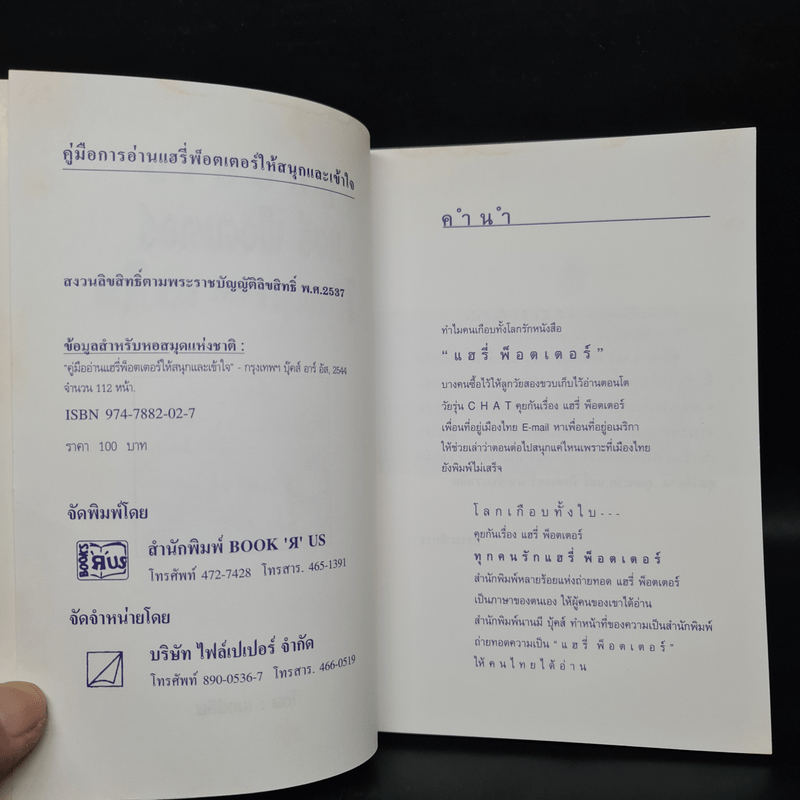 คู่มือการอ่านแฮรี่พ็อตเตอร์ให้สนุกและเข้าใจ
สงวนลิขสิทธิ์ตามพระราชบัญญัติลิขสิทธิ์ พ.ศ.2537
ข้อมูลสำหรับหอสมุดแห่งชาติ :
"คู่มืออ่านแฮรี่พ็อตเตอร์ให้สนุกและเข้าใจ" - กรุงเทพฯ บุ๊คส์ อาร์ อัส, 2544
จำนวน 112 หน้า.
ISBN 974-7882-02-7
ราคา 100 บาท
จัดพิมพ์โดย
BOOKS 'Я' US
สำนักพิมพ์ BOOK 'Я' US
โทรศัพท์ 472-7428 โทรสาร. 465-1391
จัดจำหน่ายโดย
บริษัท ไฟล์เปเปอร์ จำกัด
โทรศัพท์ 890-0536-7 โทรสาร. 466-0519
คำนำ
ทำไมคนเกือบทั้งโลกรักหนังสือ
"แฮรี่ พ็อตเตอร์"
บางคนซื้อไว้ให้ลูกวัยสองขวบเก็บไว้อ่านตอนโต
วัยรุ่น CHAT คุยกันเรื่อง แฮรี่ พ็อตเตอร์
เพื่อนที่อยู่เมืองไทย E-mail หาเพื่อนที่อยู่อเมริกา
ให้ช่วยเล่าว่าตอนต่อไปสนุกแค่ไหนเพราะที่เมืองไทย
ยังพิมพ์ไม่เสร็จ
โลกเกือบทั้งใบ---
คุยกันเรื่อง แฮรี่ พ็อตเตอร์
ทุกคนรักแฮรี่ พ็อตเตอร์
สำนักพิมพ์หลายร้อยแห่งถ่ายทอด แฮรี่ พ็อตเตอร์
เป็นภาษาของตนเอง ให้ผู้คนของเขาได้อ่าน
สำนักพิมพ์นานมี บุ๊คส์ ทำหน้าที่ของความเป็นสำนักพิมพ์
ถ่ายทอดความเป็น "แฮรี่ พ็อตเตอร์"
ให้คนไทยได้อ่าน